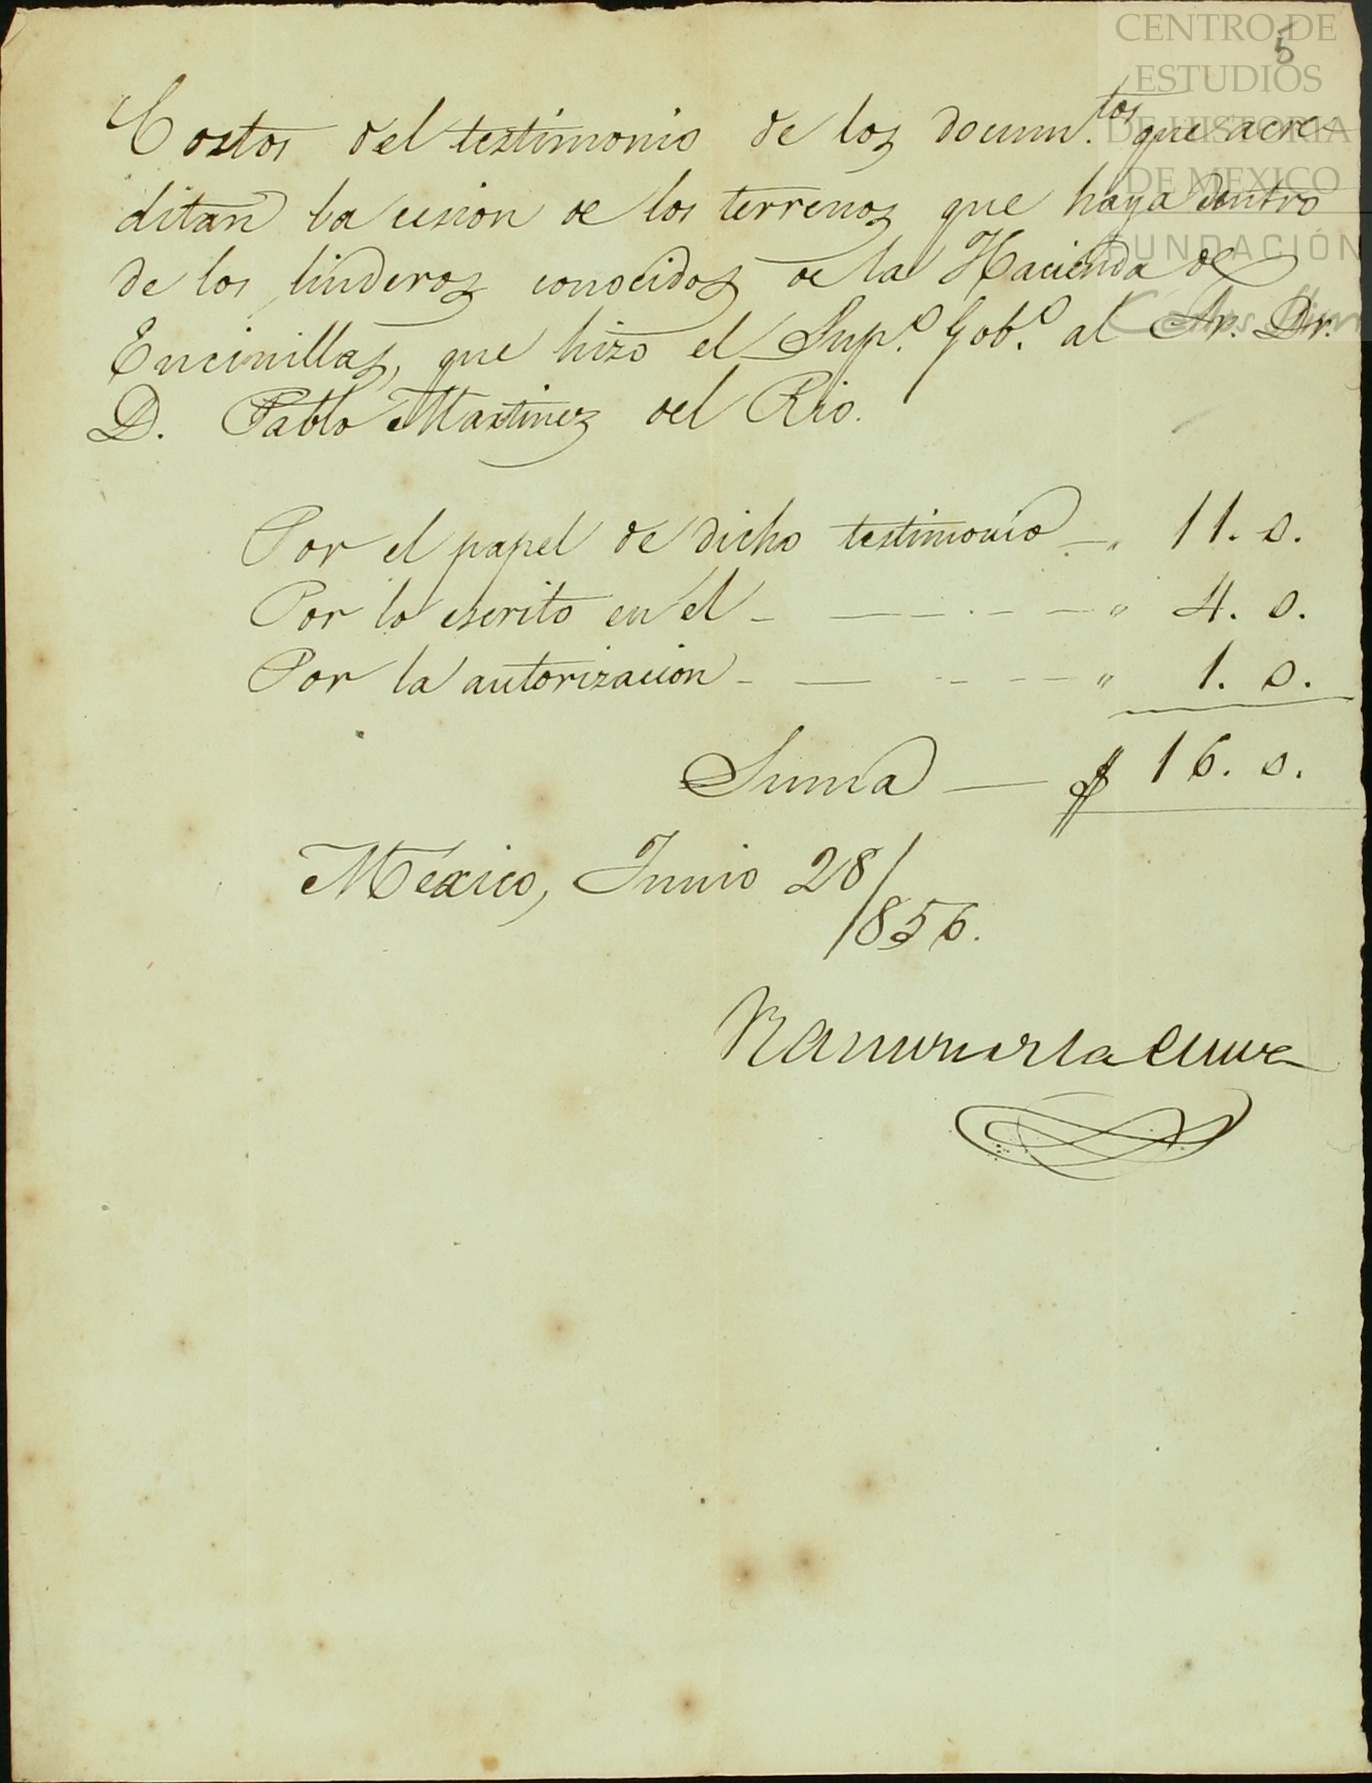 CENTRO DE
ESTUDIOS
DE HISTORIA
DE MEXICO
FUNDACIÓN
Carlos Slim
5
Costos del testimonio de los docum.tos que acre-
ditan la cesion de los terrenos que haya dentro
de los linderos conocidos de la Hacienda de
Encinillas, que hizo el Sup.o Gob.o al Sr. Dr.
D. Pablo Martinez del Rio.
Por el papel de dicho testimonio - „ 11. 0.
Por lo escrito en el - - - - - „ 4. 0.
Por la autorizacion - - - - - „ 1. 0.
Suma - $ 16. 0.
Mexico, Junio 28/
1856.